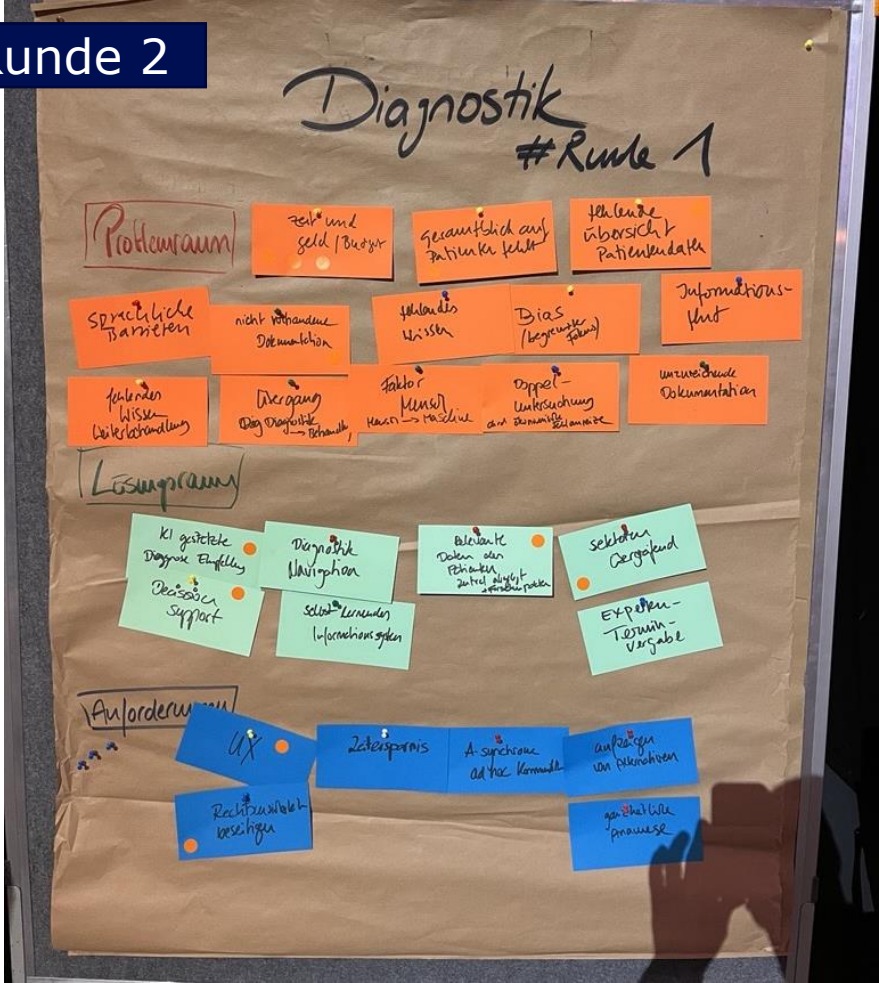 unde 2
Diagnostik
#Runde 1
Problemraum
Zeit und
geld / Budget
Gesamtblick auf
Patienten fehlt
fehlende
Übersicht
Patientendaten
Sprachliche
Barrieren
nicht vorhandene
Dokumentation
fehlendes
Wissen
Bias
(begrenzter
Fokus)
Informations-
flut
fehlendes
Wissen
Weiterbehandlung
Übergang
Diagnostik
→ Behandlung
Faktor
Mensch
Mensch → Maschine
Doppel-
untersuchung
unzureichende
Dokumentation
Lösungsraum
KI gestützte
Diagnose Empfehlung
Diagnostik
Navigation
Relevante
Daten des
Patienten
sektoren
übergreifend
Decision
Support
selbst lernendes
Informationssystem
Experten-
Termin-
vergabe
Anforderungen
UX
Zeitersparnis
A-synchrone
ad hoc
aufzeigen
von Alternativen
beseitigen
ganzheitliche
Anamnese